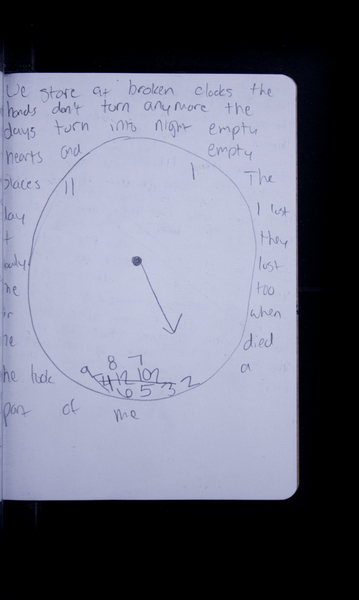 We stare at broken clocks the
hands don't turn anymore the
days turn into night empty
hearts and empty
places 11 1 The
day I lost
they
lost
me too
or when
he died
he took a
part of me
8 7
9 11 12 10 2
6 5 3 2